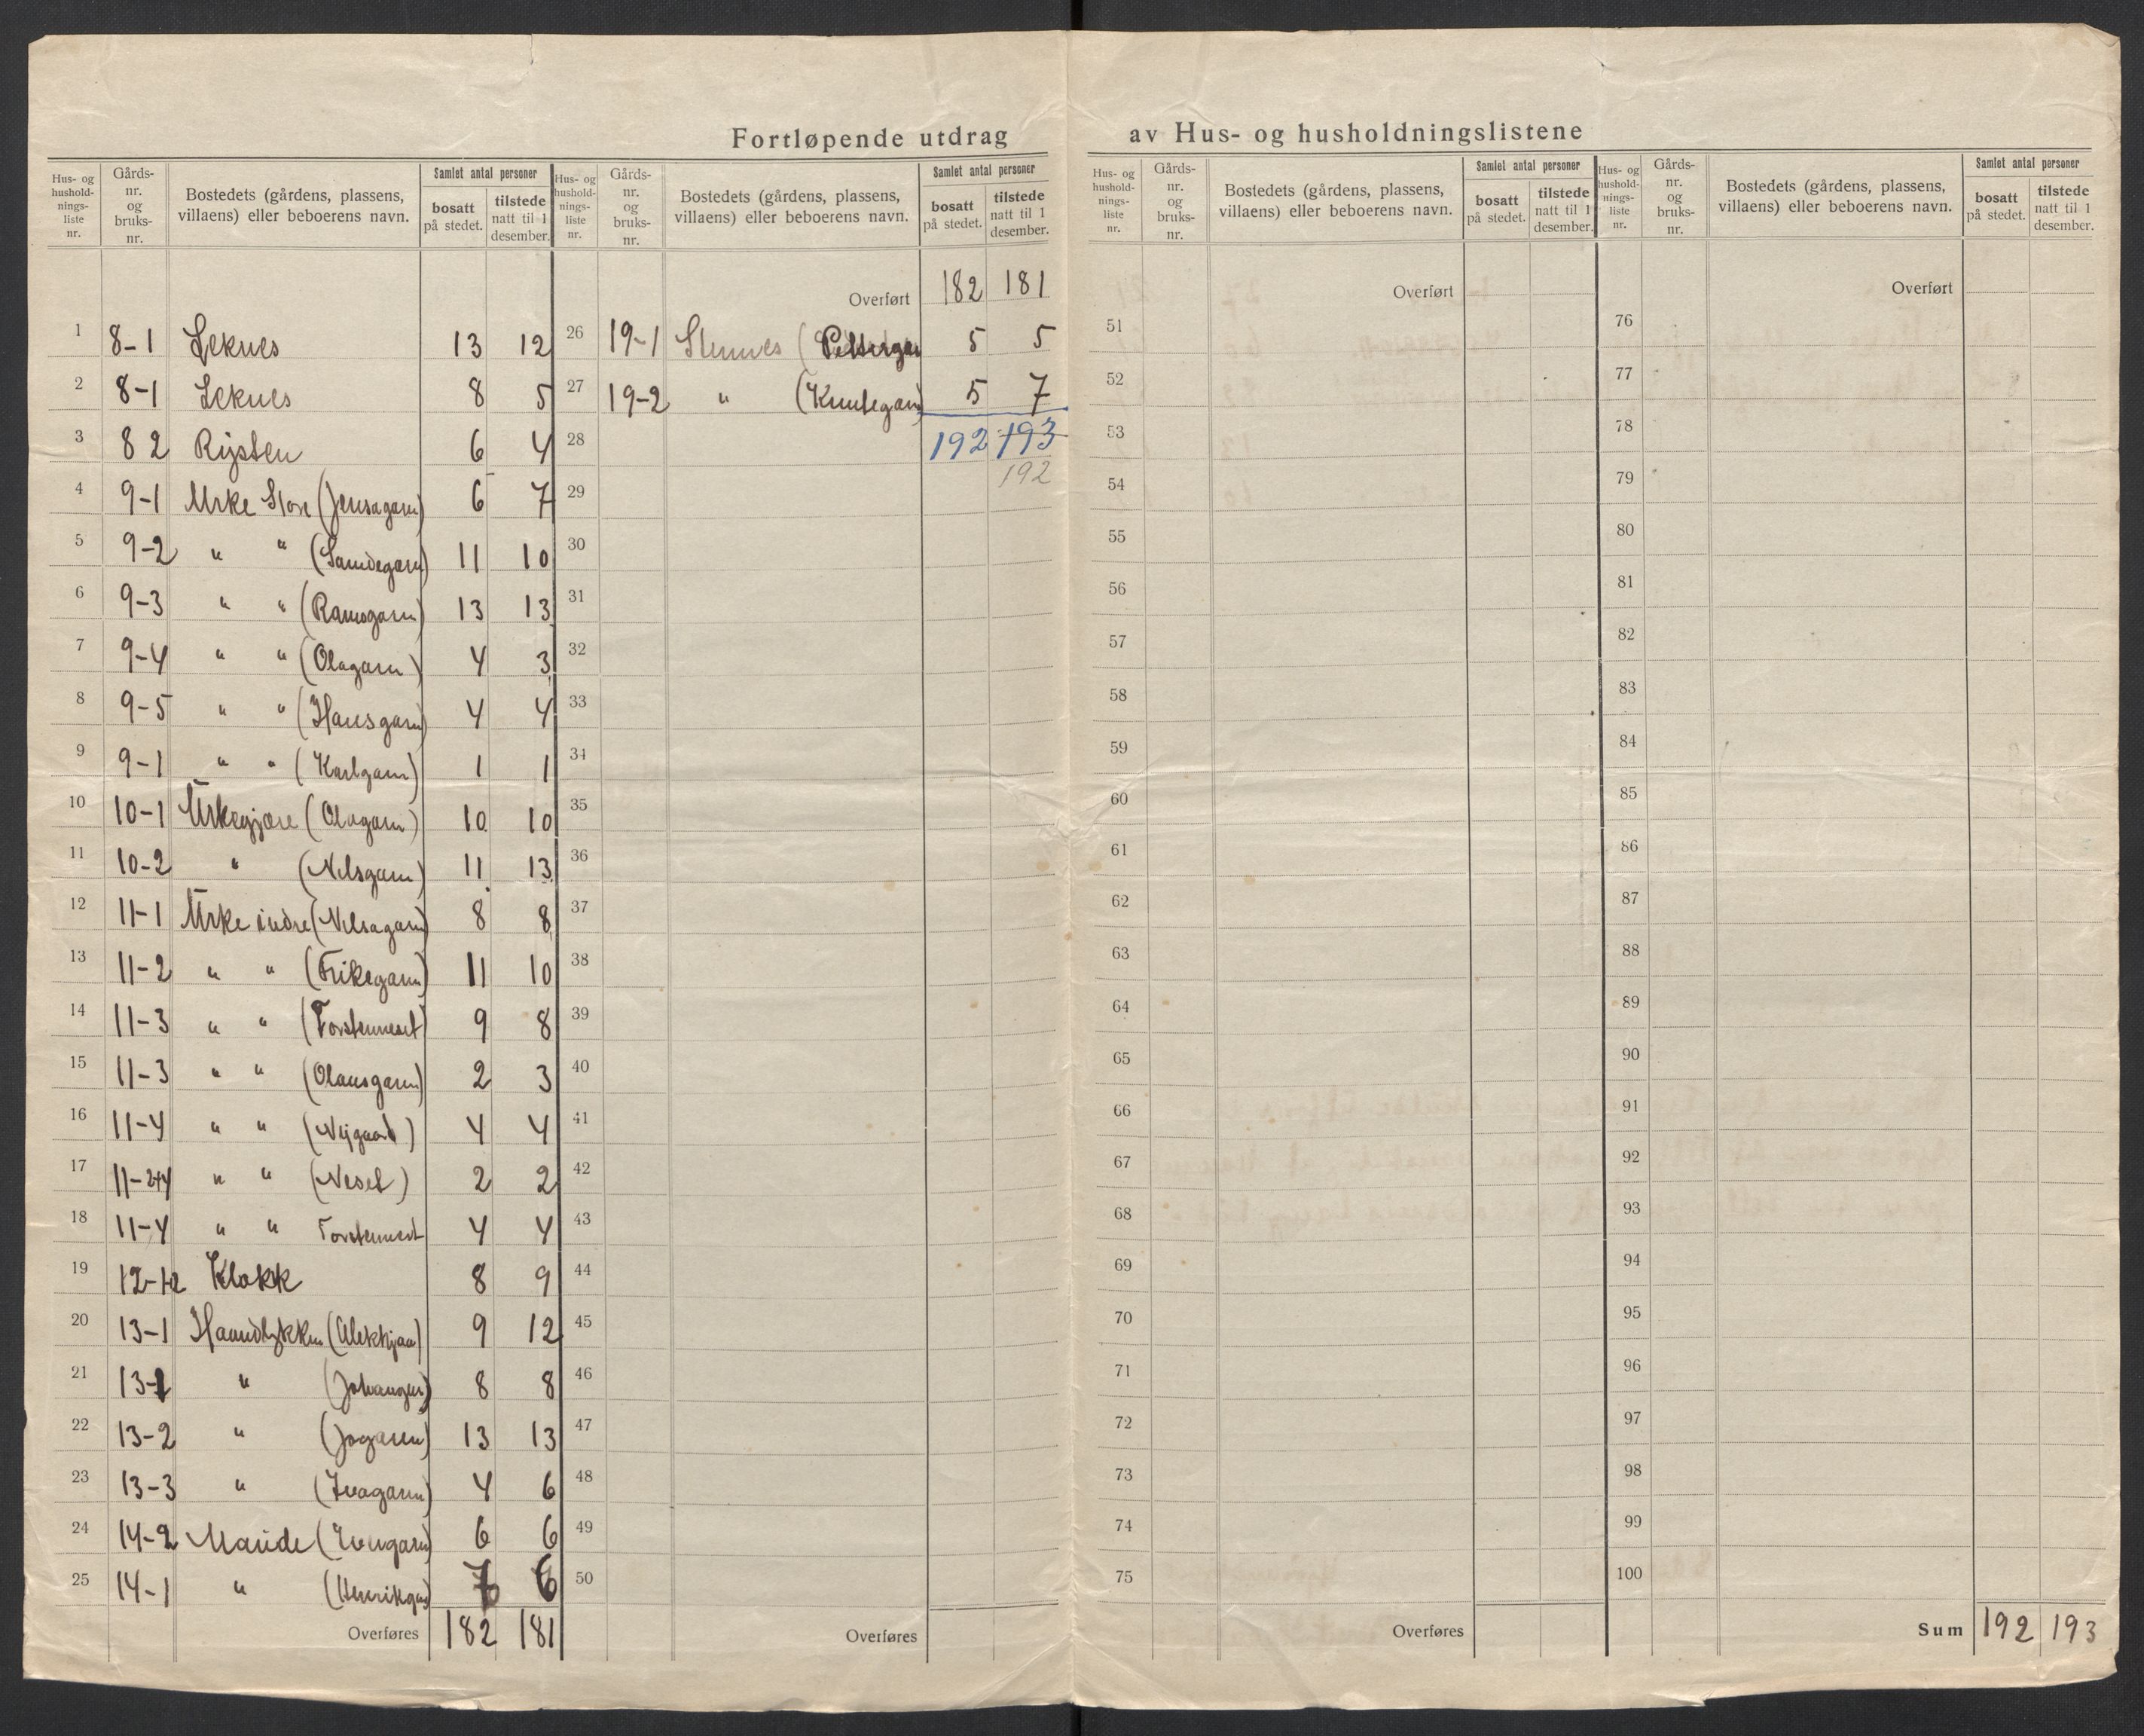 Fortløpende utdrag av Hus- og husholdningslistene
Hus- og hushold- nings- liste nr. Gårds- nr. og bruks- nr. Bostedets (gårdens, plassens, villaens) eller beboerens navn. Samlet antal personer bosatt på stedet. tilstede natt til 1 desember.
1 8-1 Leknes 13 12
2 8-1 Leknes 8 5
3 8 2 Rysten 6 4
4 9-1 Urke Store (Jensagarn) 6 7
5 9-2 " " (Samdegarn) 11 10
6 9-3 " " (Ramsgarn) 13 13
7 9-4 " " (Olagarn) 4 3
8 9-5 " " (Hansgarn) 4 4
9 9-1 " " (Karlgarn) 1 1
10 10-1 Urkegjære (Olagarn) 10 10
11 10-2 " (Nilsgarn) 11 13
12 11-1 Urke indre (Nilsagarn) 8 8
13 11-2 " " (Erikegarn) 11 10
14 11-3 " " (Torsteinneset) 9 8
15 11-3 " " (Olausgarn) 2 3
16 11-4 " " (Nygaard) 4 4
17 11-2+4 " " (Neset) 2 2
18 11-4 " " Torsteinnest 4 4
19 12-1+2 Klokk 8 9
20 13-1 Haandlykken 9 12
21 13-1 " 8 8
22 13-2 " (Jogarn) 13 13
23 13-3 " (Ivagarn) 4 6
24 14-2 Maude 6 6
25 14-1 " (Henrikgar) 7 6
Overføres 182 181
Hus- og hushold- nings- liste nr. Gårds- nr. og bruks- nr. Bostedets (gårdens, plassens, villaens) eller beboerens navn. Samlet antal personer bosatt på stedet. tilstede natt til 1 desember.
Overført 182 181
26 19-1 Stennes (Pettergar 5 5
27 19-2 " (Knutegarn) 5 7
28 192 193
29 192
30
31
32
33
34
35
36
37
38
39
40
41
42
43
44
45
46
47
48
49
50
Overføres
Hus- og hushold- nings- liste nr. Gårds- nr. og bruks- nr. Bostedets (gårdens, plassens, villaens) eller beboerens navn. Samlet antal personer bosatt på stedet. tilstede natt til 1 desember.
Overført
51
52
53
54
55
56
57
58
59
60
61
62
63
64
65
66
67
68
69
70
71
72
73
74
75
Overføres
Hus- og hushold- nings- liste nr. Gårds- nr. og bruks- nr. Bostedets (gårdens, plassens, villaens) eller beboerens navn. Samlet antal personer bosatt på stedet. tilstede natt til 1 desember.
Overført
76
77
78
79
80
81
82
83
84
85
86
87
88
89
90
91
92
93
94
95
96
97
98
99
100
Sum 192 193